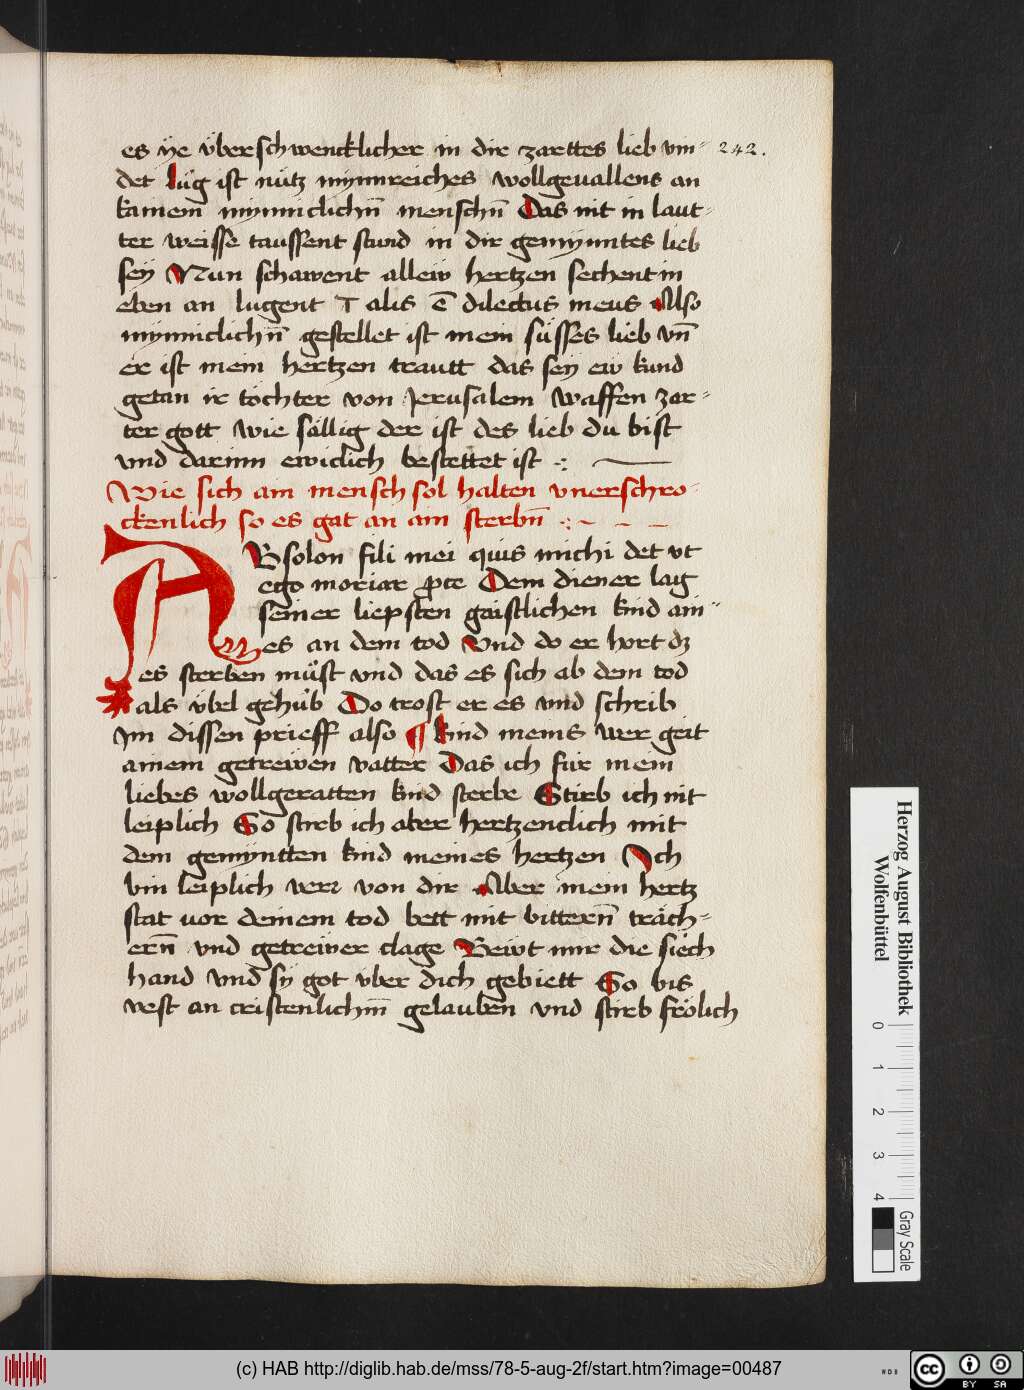 es ÿe überschwencklicher in dir zarttes lieb vin⸗ 242.
det lüg ist nütz mynnreiches wollgeuallens an
kainem mynniclichn̄ menschn̄ Das nit in laut⸗
ter weisse taussent stund in dir gemynntes lieb
sey Nun schawent allew hertzen sechent in
eben an lugent T alis ē dilectus meus Also
mynniclichn̄ gestellet ist mein süsses lieb vn̄
er ist mein hertzen trautt das sey ew kund
getan ir töchter von Jerusalem Waffen zar⸗
ter gott wie sällig der ist des lieb du bist
vnd darinn ewiclich bestettet ist
Wie sich ain mensch sol halten vnerschro⸗
ckenlich so es gat an ain sterbn̄
ABsolon fili mei quis michi det vt
ego moriar ꝓ te Dem diener lag
seiner liepsten gaistlichen kind ain⸗
es an dem tod Vnd do er hort dz
es sterben müst vnd das es sich ab dem tod
als übel gehüb Do trost er es vnd schrib
Im dissen prieff also ¶ Kind meins wer geit
ainem getrewen vatter Das ich für mein
liebes wollgeratten kind sterbe Stirb ich nit
leiplich So stirb ich aber hertzenclich mit
dem gemyntten kind meines hertzen Ich
bin leiplich verr von dir Aber mein hertz
stat vor deinem tod bett mit bittern̄ träch⸗
ern̄ vnd getrewer clage Bewt mir die siech
hand Vnd sy got vber dich gebiett So bis
vest an cristenlichm̄ gelauben vnd stirb frölich
Herzog August Bibliothek
Wolfenbüttel
0 1 2 3 4
Gray Scale
(c) HAB http://diglib.hab.de/mss/78-5-aug-2f/start.htm?image=00487
cc BY SA